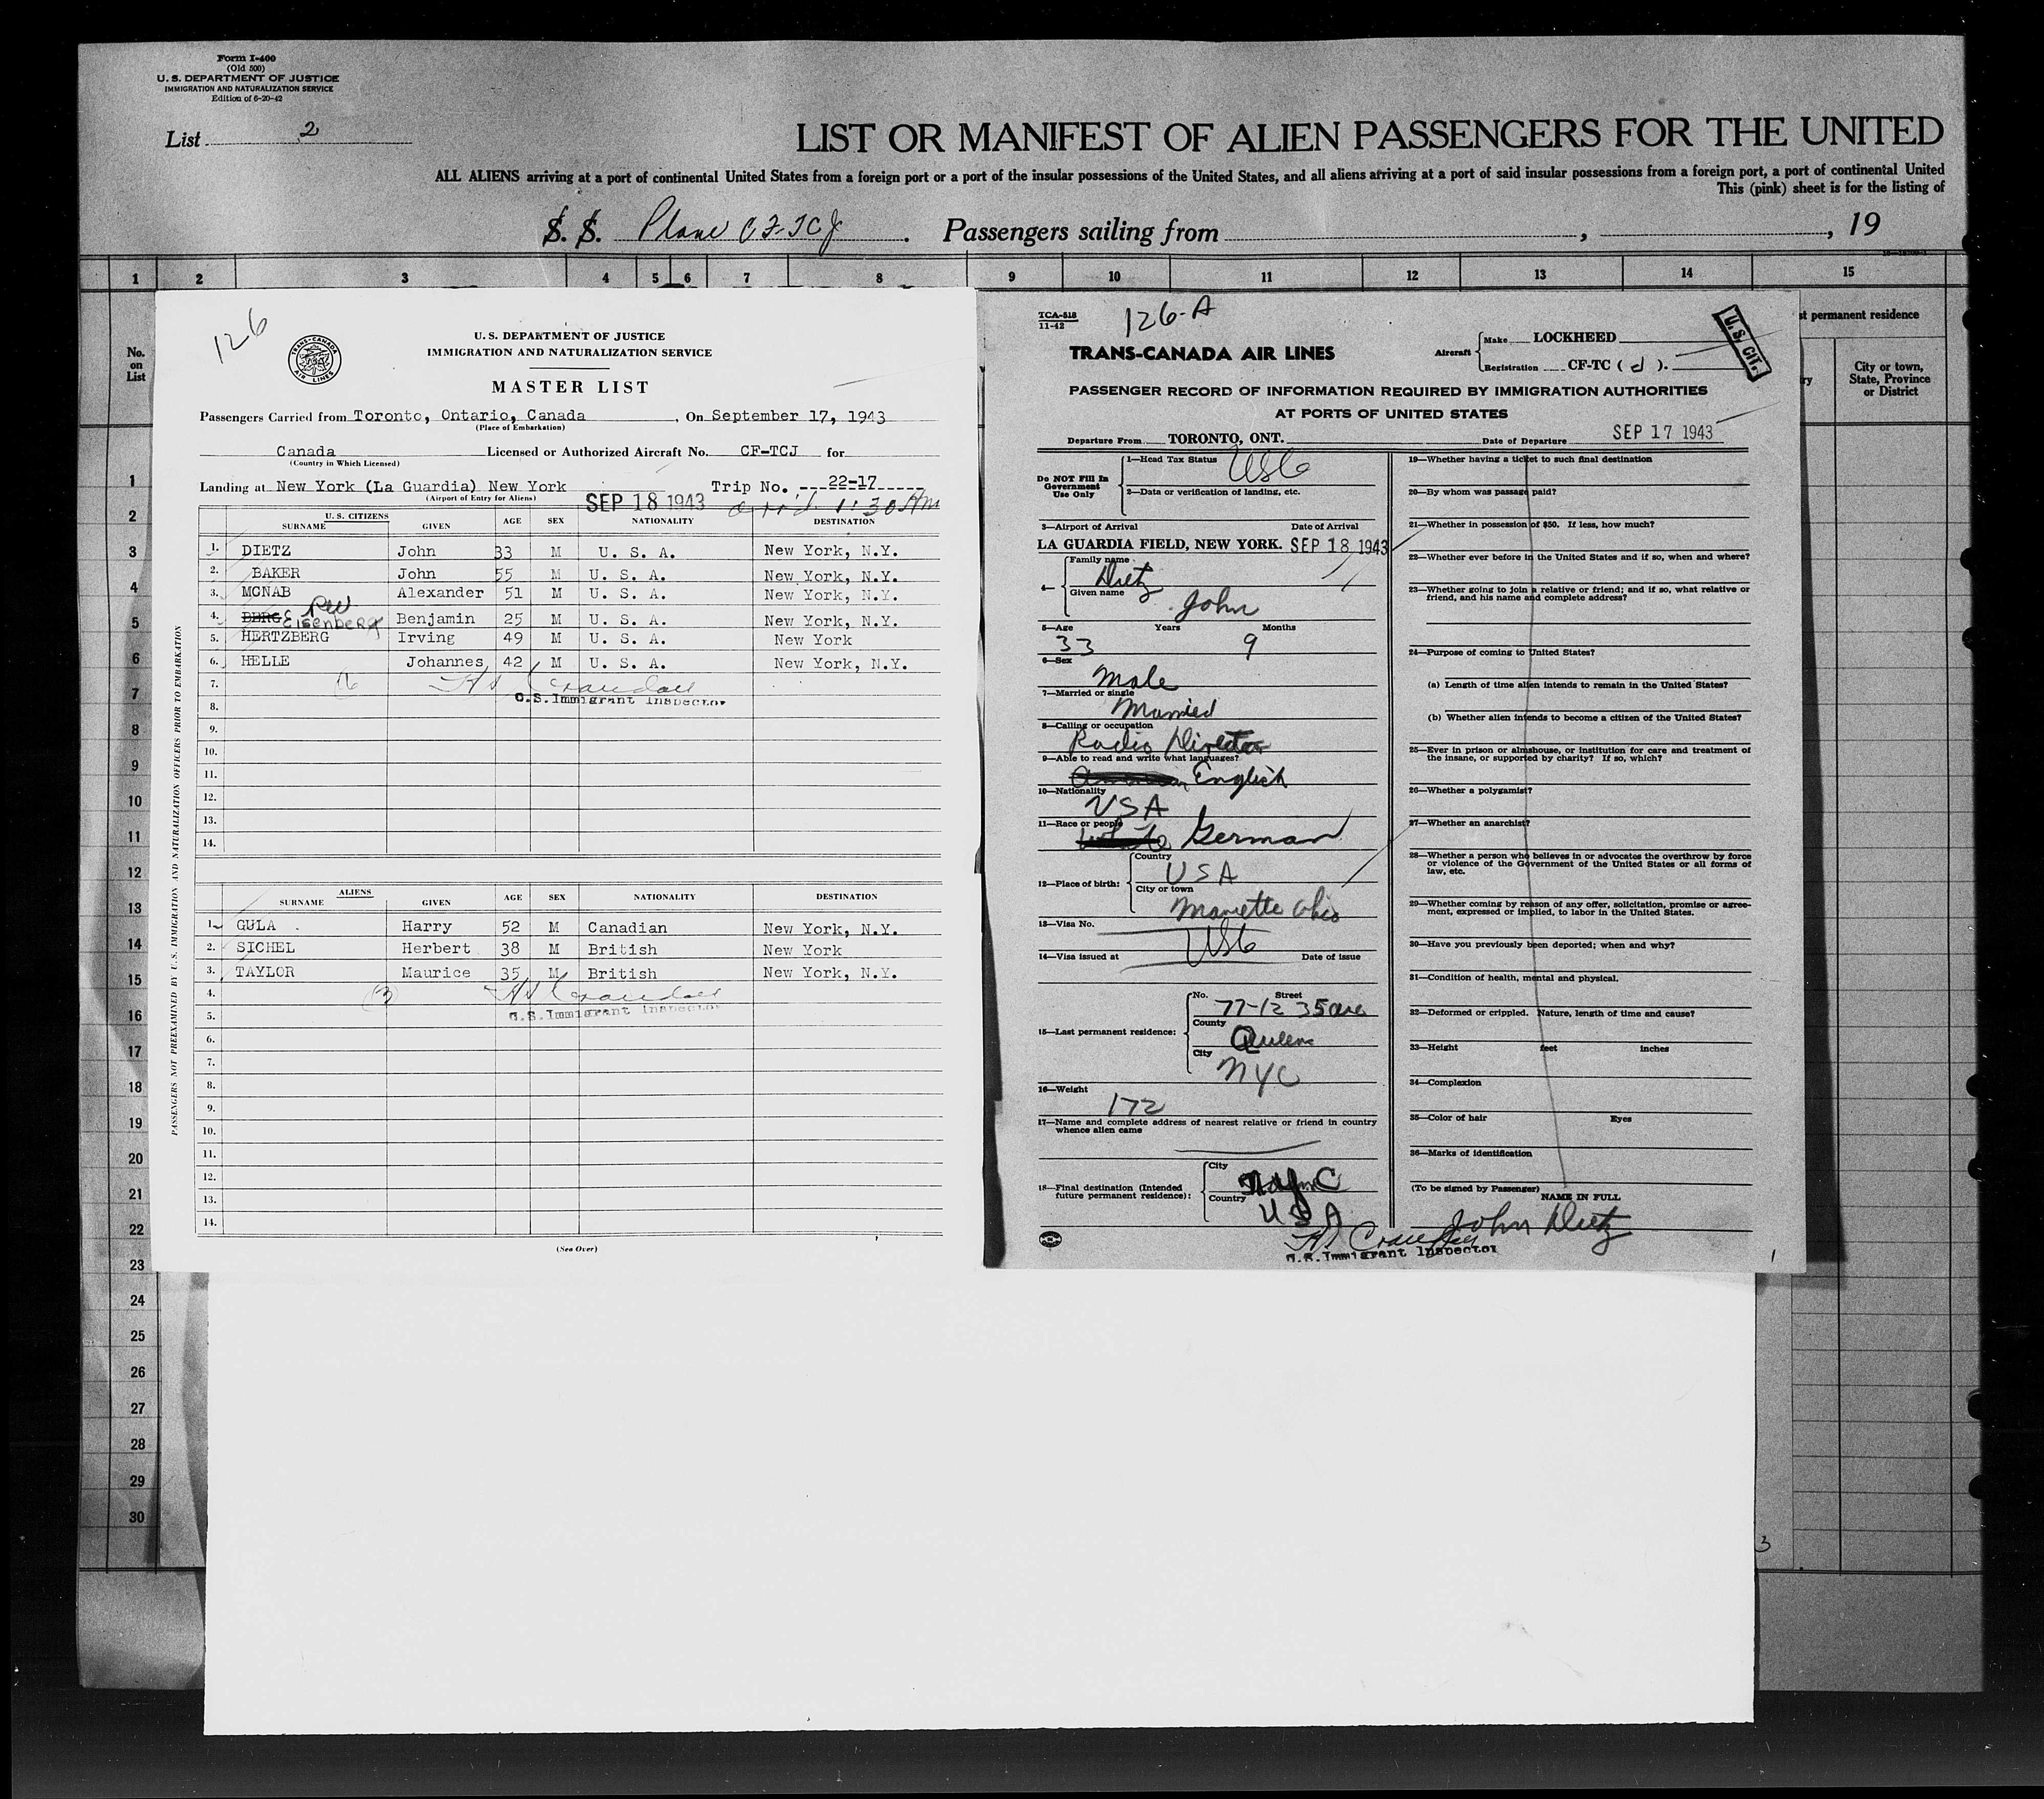 Form I-400
(Old 500)
U. S. DEPARTMENT OF JUSTICE
IMMIGRATION AND NATURALIZATION SERVICE
Edition of 6-20-42
List 2
LIST OR MANIFEST OF ALIEN PASSENGERS FOR THE UNITED
ALL ALIENS arriving at a port of continental United States from a foreign port or a port of the insular possessions of the United States, and all aliens arriving at a port of said insular possessions from a foreign port, a port of continental United
This (pink) sheet is for the listing of
S. S. Plane CF-TCJ. Passengers sailing from , , 19
1 2 3 4 5 6 7 8 9 10 11 12 13 14 15
No. on List
st permanent residence
ry
City or town, State, Province or District
1
2
3
4
5
6
7
8
9
10
11
12
13
14
15
16
17
18
19
20
21
22
23
24
25
26
27
28
29
30
3
126
TRANS-CANADA AIR LINES
U. S. DEPARTMENT OF JUSTICE
IMMIGRATION AND NATURALIZATION SERVICE
MASTER LIST
Passengers Carried from Toronto, Ontario, Canada, On September 17, 1943
(Place of Embarkation)
Canada Licensed or Authorized Aircraft No. CF-TCJ for
(Country in Which Licensed)
Landing at New York (La Guardia) New York Trip No. 22-17
(Airport of Entry for Aliens) SEP 18 1943 arr'd 1:30 AM
U. S. CITIZENS
SURNAME GIVEN AGE SEX NATIONALITY DESTINATION
1. DIETZ John 33 M U. S. A. New York, N.Y.
2. BAKER John 55 M U. S. A. New York, N.Y.
3. MCNAB Alexander 51 M U. S. A. New York, N.Y.
4. BERG Eisenberg Benjamin 25 M U. S. A. New York, N.Y.
5. HERTZBERG Irving 49 M U. S. A. New York
6. HELLE Johannes 42 M U. S. A. New York, N.Y.
7. (6 H S Crandall
8. U.S. Immigrant Inspector
9.
10.
11.
12.
13.
14.
ALIENS
SURNAME GIVEN AGE SEX NATIONALITY DESTINATION
1. GULA Harry 52 M Canadian New York, N.Y.
2. SICHEL Herbert 38 M British New York
3. TAYLOR Maurice 35 M British New York, N.Y.
4. (3) H S Crandall
5. U.S. Immigrant Inspector
6.
7.
8.
9.
10.
11.
12.
13.
14.
(See Over)
PASSENGERS NOT PREEXAMINED BY U.S. IMMIGRATION AND NATURALIZATION OFFICERS PRIOR TO EMBARKATION
TCA-518
11-42
126-A
TRANS-CANADA AIR LINES
Aircraft Make LOCKHEED
Registration CF-TC ( J ).
U. S. CIT.
PASSENGER RECORD OF INFORMATION REQUIRED BY IMMIGRATION AUTHORITIES
AT PORTS OF UNITED STATES
Departure From TORONTO, ONT. Date of Departure SEP 17 1943
Do NOT Fill In Government Use Only
1—Head Tax Status USC
2—Data or verification of landing, etc.
3—Airport of Arrival Date of Arrival
LA GUARDIA FIELD, NEW YORK. SEP 18 1943
4— Family name Dietz
Given name John
5—Age Years Months
33 9
6—Sex
Male
7—Married or single
Married
8—Calling or occupation
Radio Director
9—Able to read and write what languages?
English
10—Nationality
USA
11—Race or people
White German
12—Place of birth: Country
USA
City or town
Marietta Ohio
13—Visa No.
USC
14—Visa issued at Date of issue
15—Last permanent residence: No. Street
77-12 35 ave
County
Queens
City
NYC
16—Weight
172
17—Name and complete address of nearest relative or friend in country
whence alien came
18—Final destination (Intended future permanent residence): City
NYC
Country
USA
H S Crandall
U.S. Immigrant Inspector
19—Whether having a ticket to such final destination
20—By whom was passage paid?
21—Whether in possession of $50. If less, how much?
22—Whether ever before in the United States and if so, when and where?
23—Whether going to join a relative or friend; and if so, what relative or
friend, and his name and complete address?
24—Purpose of coming to United States?
(a) Length of time alien intends to remain in the United States?
(b) Whether alien intends to become a citizen of the United States?
25—Ever in prison or almshouse, or institution for care and treatment of
the insane, or supported by charity? If so, which?
26—Whether a polygamist?
27—Whether an anarchist?
28—Whether a person who believes in or advocates the overthrow by force
or violence of the Government of the United States or all forms of
law, etc.
29—Whether coming by reason of any offer, solicitation, promise or agree-
ment, expressed or implied, to labor in the United States.
30—Have you previously been deported; when and why?
31—Condition of health, mental and physical.
32—Deformed or crippled. Nature, length of time and cause?
33—Height feet inches
34—Complexion
35—Color of hair Eyes
36—Marks of identification
(To be signed by Passenger)
NAME IN FULL
John Dietz
1